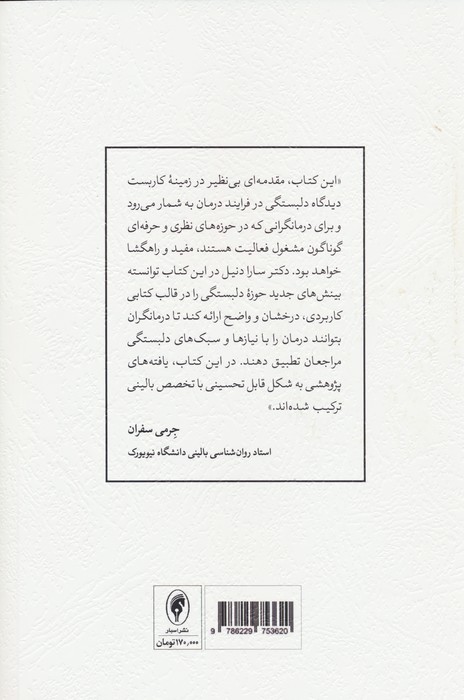 «این کتاب، مقدمه‌ای بی‌نظیر در زمینهٔ کاربست
دیدگاه دلبستگی در فرایند درمان به شمار می‌رود
و برای درمانگرانی که در حوزه‌های نظری و حرفه‌ای
گوناگون مشغول فعالیت هستند، مفید و راهگشا
خواهد بود. دکتر سارا دنیل در این کتاب توانسته
بینش‌های جدید حوزهٔ دلبستگی را در قالب کتابی
کاربردی، درخشان و واضح ارائه کند تا درمانگران
بتوانند درمان را با نیازها و سبک‌های دلبستگی
مراجعان تطبیق دهند. در این کتاب، یافته‌های
پژوهشی به شکل قابل تحسینی با تخصص بالینی
ترکیب شده‌اند.»
جرمی سفران
استاد روان‌شناسی بالینی دانشگاه نیویورک
نشر اسبار
۱۷۰,۰۰۰ تومان
9 786229 753620